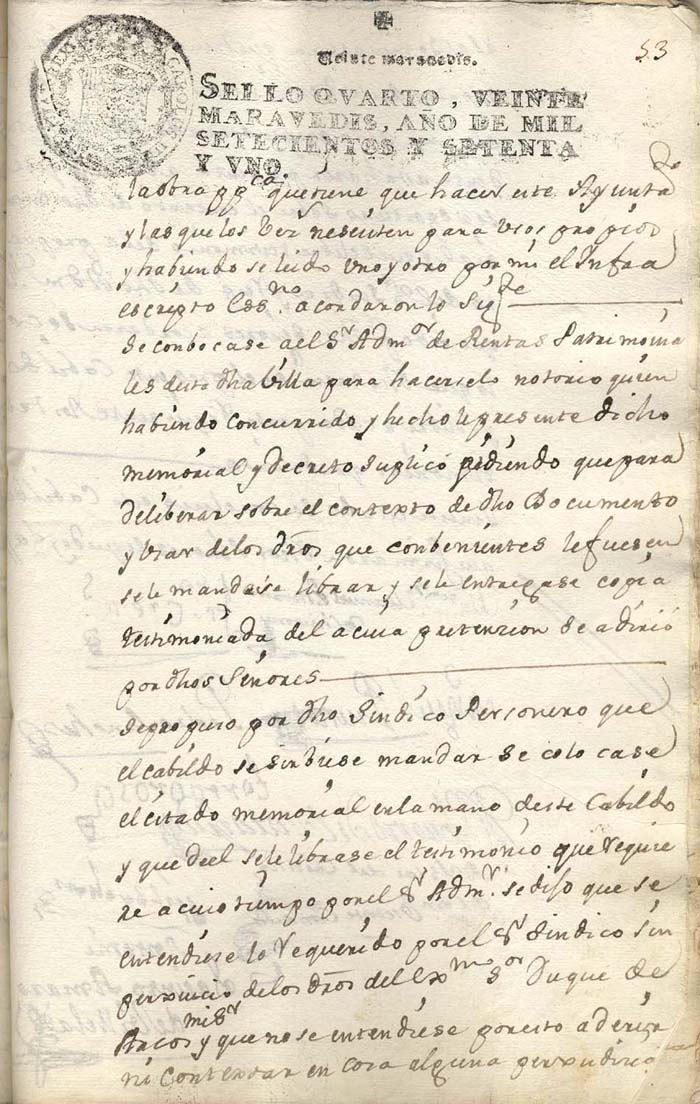 53
Veinte maravedis.
SELLO QVARTO, VEINTE
MARAVEDIS, AÑO DE MIL
SETECIENTOS Y SETENTA
Y VNO
CAROLUS III
la obra ppca. que tiene que hacer este Ayuntamto
y las que los Vez nesesiten para usos propios
y habiendo se leido uno y otro por mi el Infra
escripto Essno acordaron lo Sigte
Se conbocase a el Sr Admor de Rentas Patrimonia
les desta dha Villa para hacerselo notorio quien
habiendo concurrido y hechole presente dicho
memorial y decreto suplicó pidiendo que para
deliberar sobre el contexto de dho Documento
y Usar de los dros que conbenientes le fuesen
se le mandase librar y se le entregase copia
testimoniada del a cuia pretenzion se adirió
por dhos Señores
Se propuso por dho Sindico Personero que
el cabildo se sirbiese mandar se colocase
el citado memorial en la mano deste Cabildo
y que de el se le librase el testimonio que requie
re a cuio tiempo por el Sr Admr. se dijo que se
entendiese lo requerido por el Sr Sindico sin
perxuicio de los dros del Exmo Sor Duque de
Arcos mi Sr y que no se entendiese por esto aderir
ni contextar en cosa alguna perxudicia